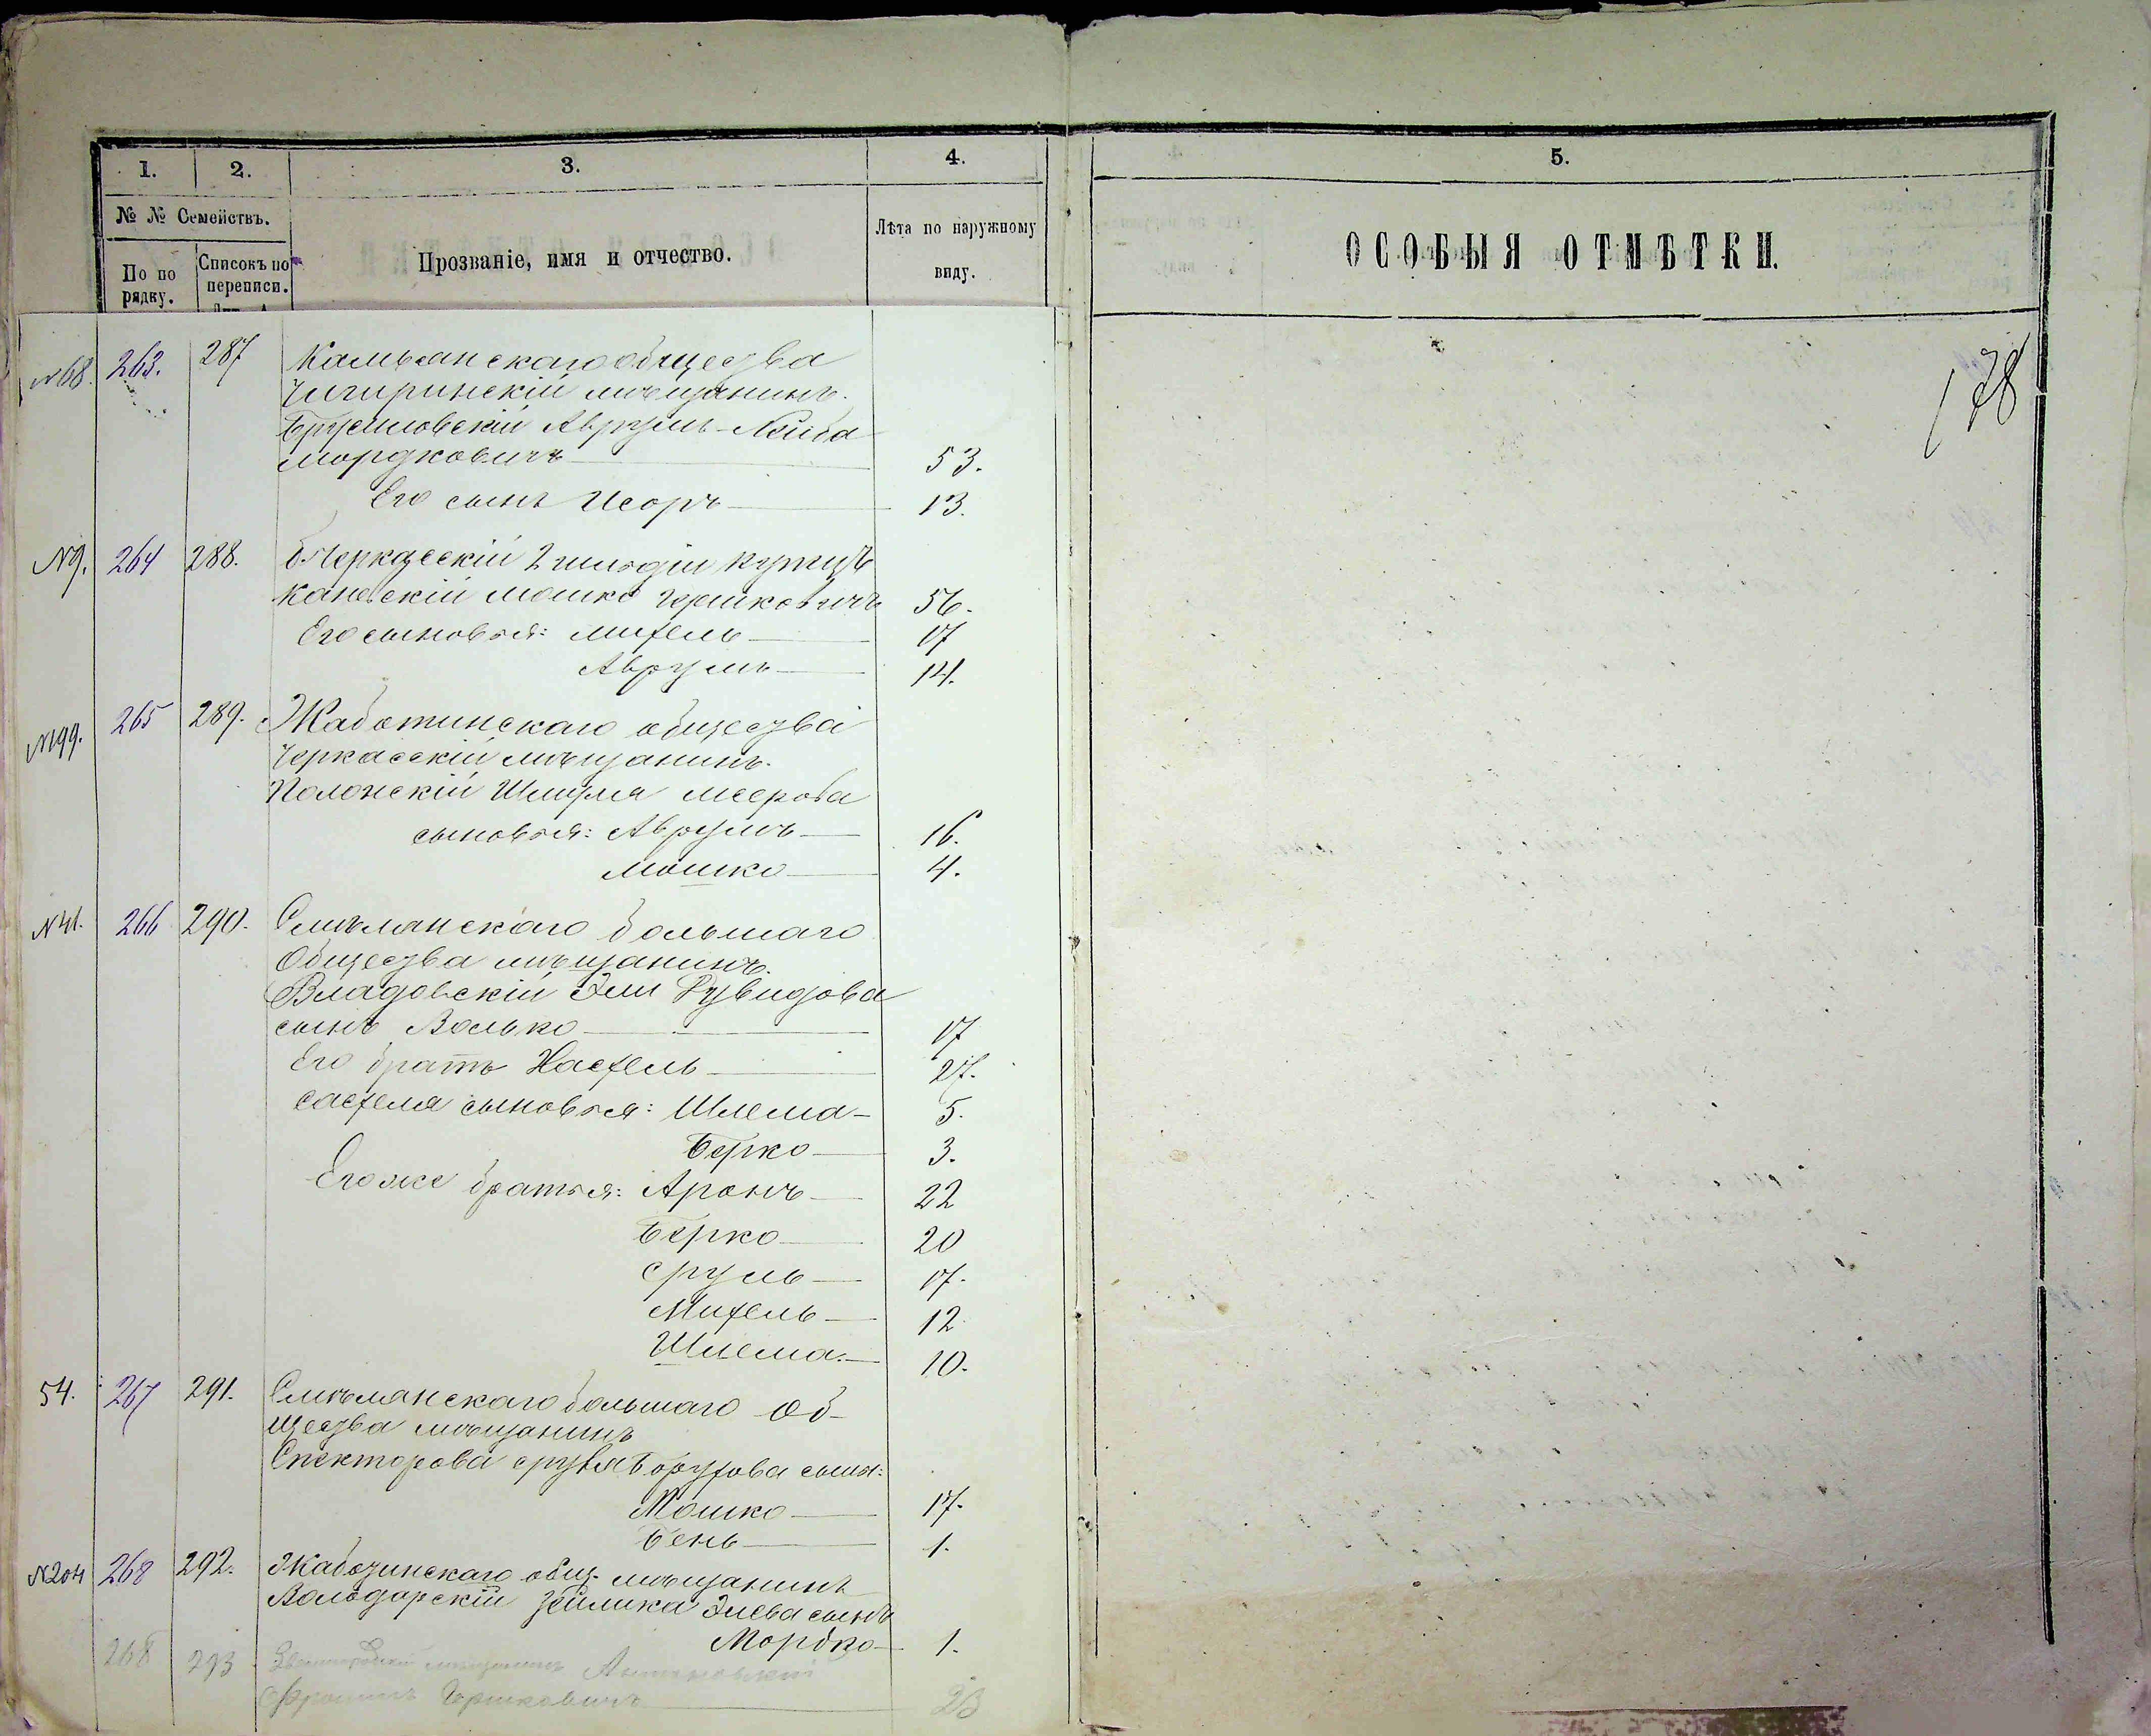 1. 2. 3. 4.
№ № Семействъ.
По по рядку.
Списокъ по переписи.
Прозваніе, имя и отчество.
Лѣта по наружному виду.
№68. 263. 287 Камьянскаго общества
Чигиринскій мѣщанинъ.
Брусиловскій Аврумъ-Лейба
Мордковичъ 53.
Его сынъ Исоръ 13.
№9. 264 288. б. Черкасскій 2 гильдіи купецъ
Каневскій Мошко Гершковичъ 56.
Его сыновья: Михель 17
Аврумъ 14.
№199. 265 289. Жаботинскаго общества
Черкасскій мѣщанинъ.
Полонскій Шмуля Меерова
сыновья: Аврумъ 16.
Мошко 4.
№41. 266 290. Смѣлянскаго большаго
Общества мѣщанинъ.
Владовскій Эли Рувидова
сынъ Волько 17
Его братъ Хасфель 27.
Сасфеля сыновья: Шлема 5.
Берко 3.
Егоже братья: Аронъ 22
Берко 20
Сруль 17.
Михель 12
Шлема. 10.
54. 267 291. Смѣлянскаго большаго Об-
щества мѣщанинъ
Спекторова Сруля Борухова сыны:
Мошко 17.
Бень 1.
№204 268 292. Жаботинскаго общ. мѣщанинъ
Вольдарскій Зейлика Элева сынъ
Мордко 1.
268 293 Звенигородскій мѣщанинъ
Гершковичъ 23
5.
ОСОБЫЯ ОТМѢТКИ.
178